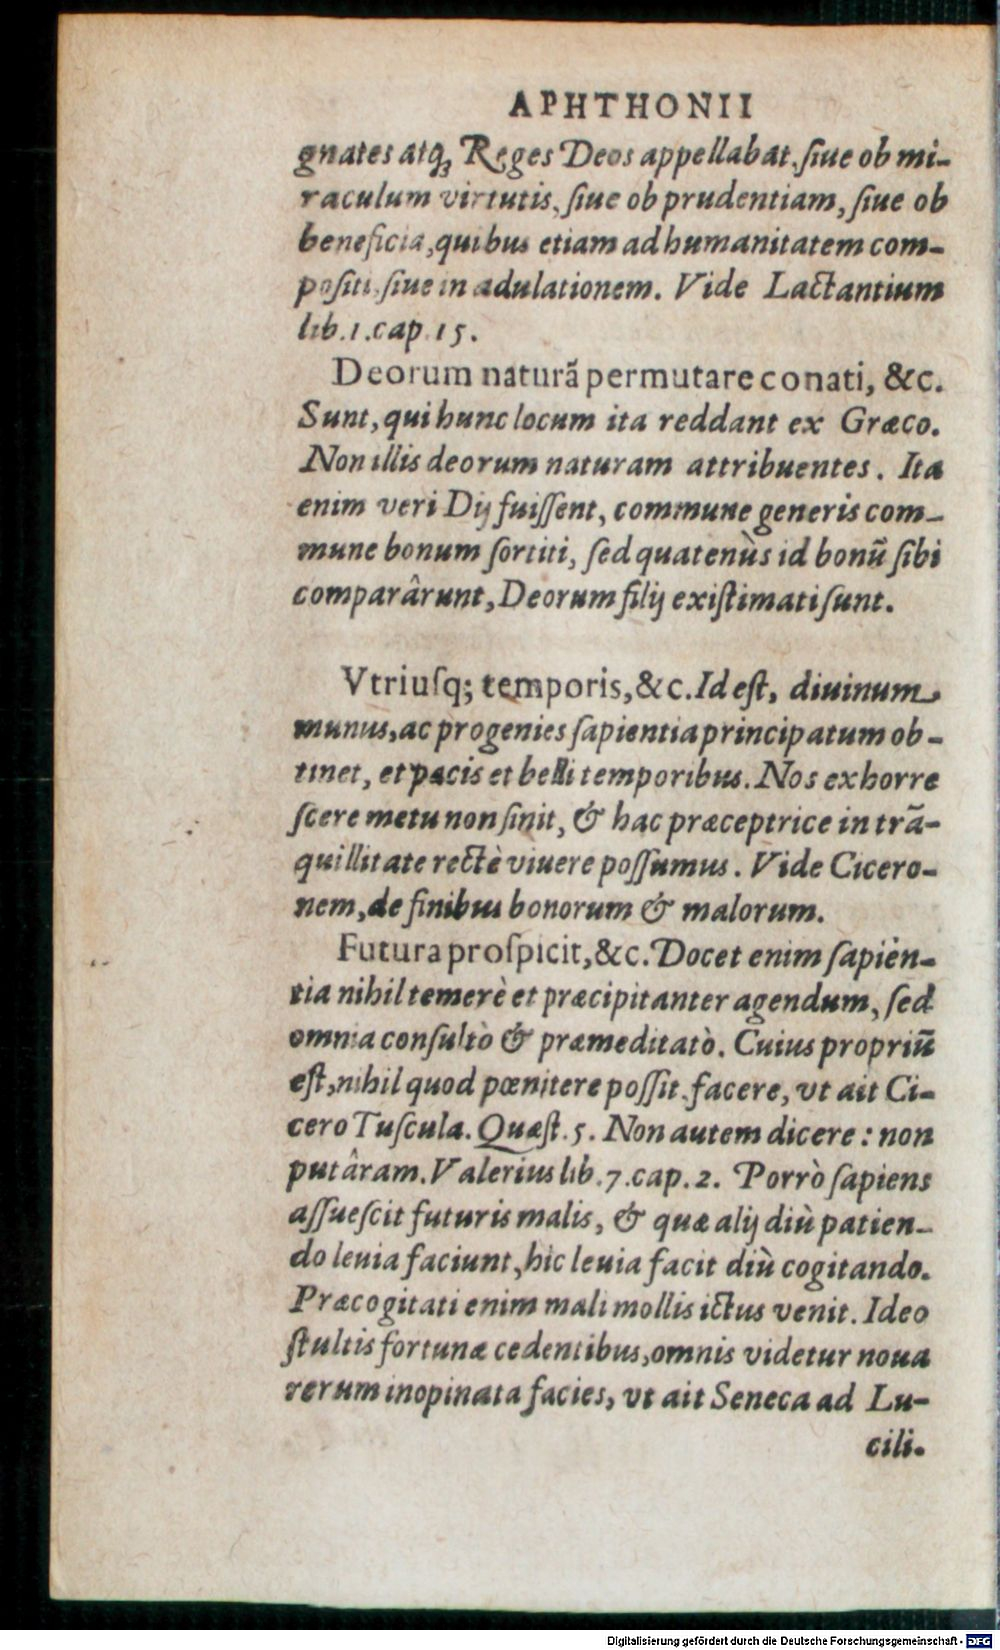 APHTHONII
gnates atq́; Reges Deos appellabāt, ſiue ob mi-
raculum virtutis, ſiue ob prudentiam, ſiue ob
beneficia, quibus etiam ad humanitatem com-
poſiti, ſiue in adulationem. Vide Lactantium
lib. 1. cap 15.
Deorum naturã permutare conati, &c.
Sunt, qui hunc locum ita reddant ex Græco.
Non illis deorum naturam attribuentes. Ita
enim veri Dij fuiſſent, commune generis com-
mune bonum ſortiti, ſed quatenùs id bonũ ſibi
comparârunt, Deorum filij exiſtimati ſunt.
Vtriuſq; temporis, &c. Id eſt, diuinum
munus, ac progenies ſapientia principatum ob-
tinet, et pacis et belli temporibus. Nos exhorre
ſcere metu non ſinit, & hac præceptrice in trã-
quillitate rectè viuere poſſumus. Vide Cicero-
nem, de finibus bonorum & malorum.
Futura proſpicit, &c. Docet enim ſapien-
tia nihil temerè et præcipitanter agendum, ſed
omnia conſultò & præmeditatò. Cuius propriũ
eſt, nihil quod pœnitere poſſit, facere, vt ait Ci-
cero Tuſcula. Quæſt. 5. Non autem dicere: non
putâram. Valerius lib. 7. cap. 2. Porrò ſapiens
aſſueſcit futuris malis, & quæ alij diù patien-
do leuia faciunt, hic leuia facit diù cogitando.
Præcogitati enim mali mollis ictus venit. Ideo
ſtultis fortunæ cedentibus, omnis videtur noua
rerum inopinata facies, vt ait Seneca ad Lu-
cili.
Digitalisierung gefördert durch die Deutsche Forschungsgemeinschaft - DFG